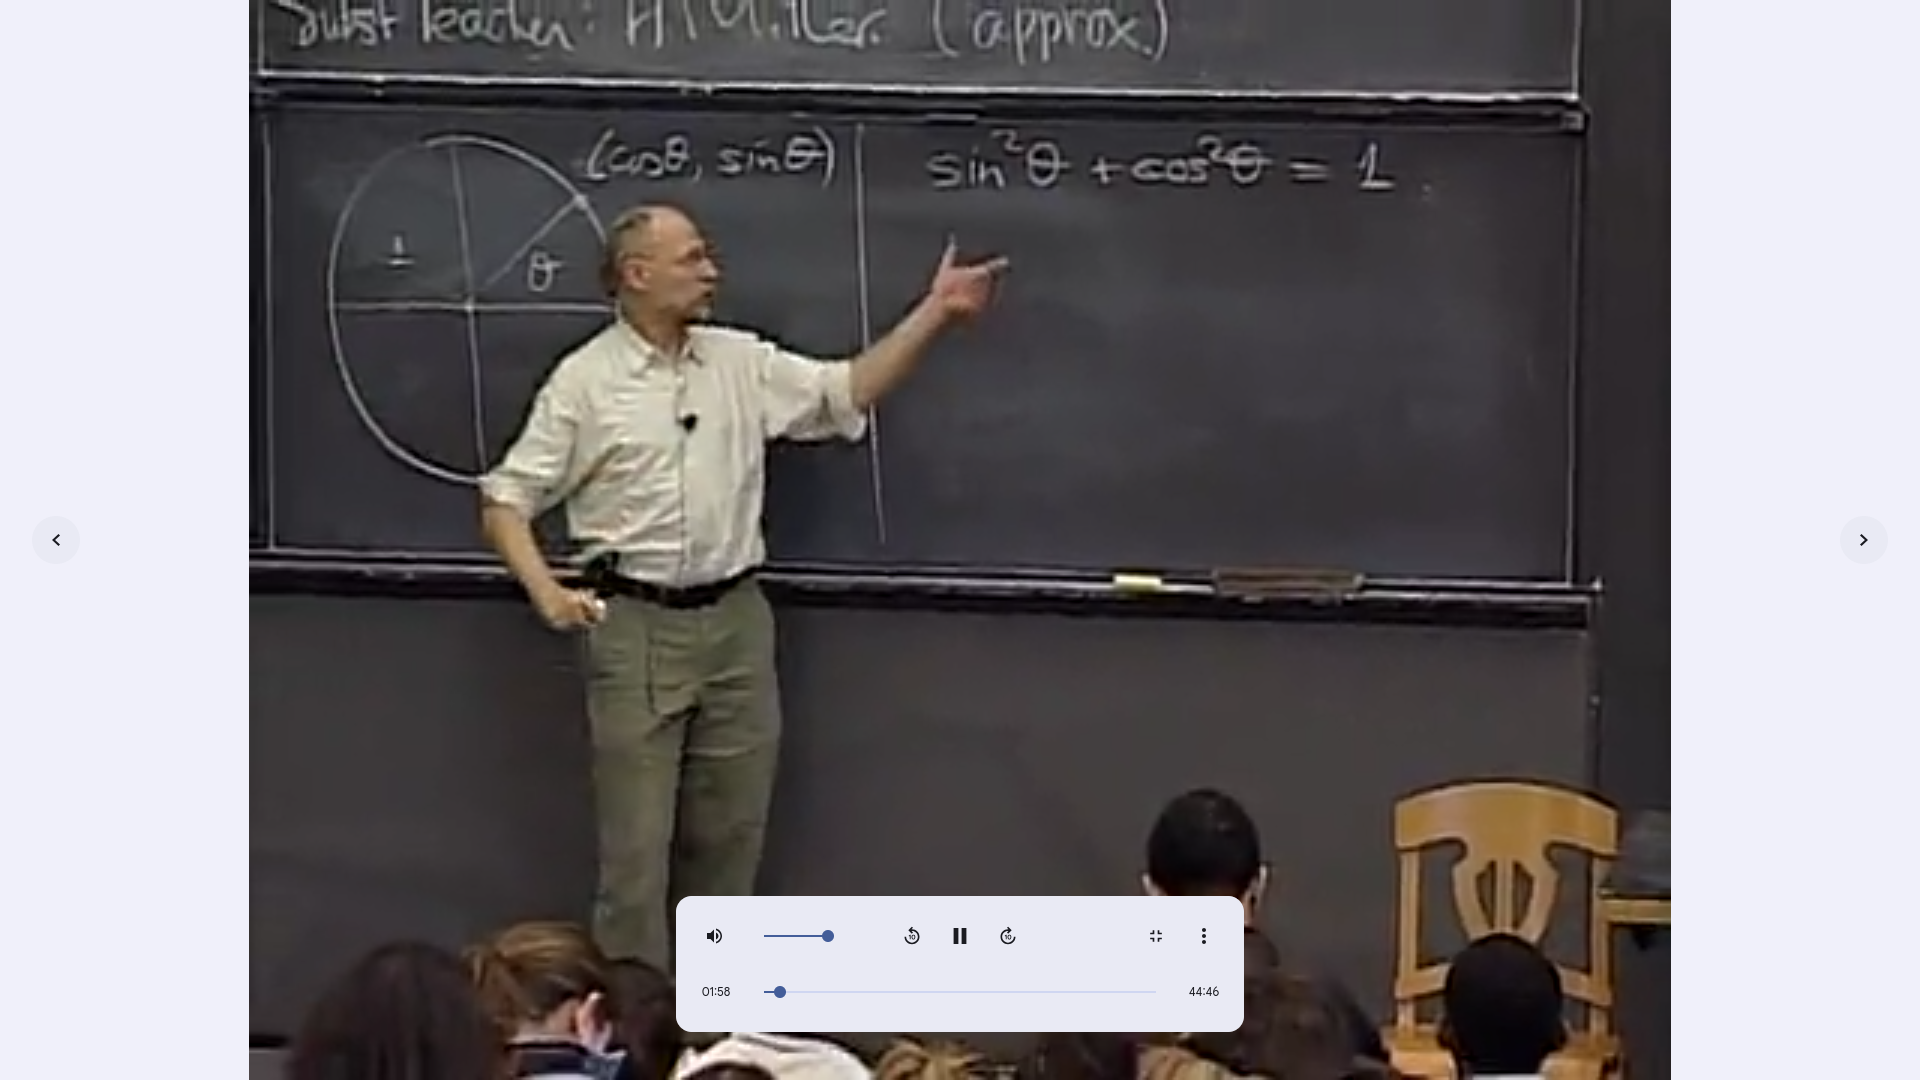 Subst Teacher: H Miller. (approx.)
(cosθ, sinθ)
sin²θ + cos²θ = 1.
1
θ
10
10
01:58
44:46